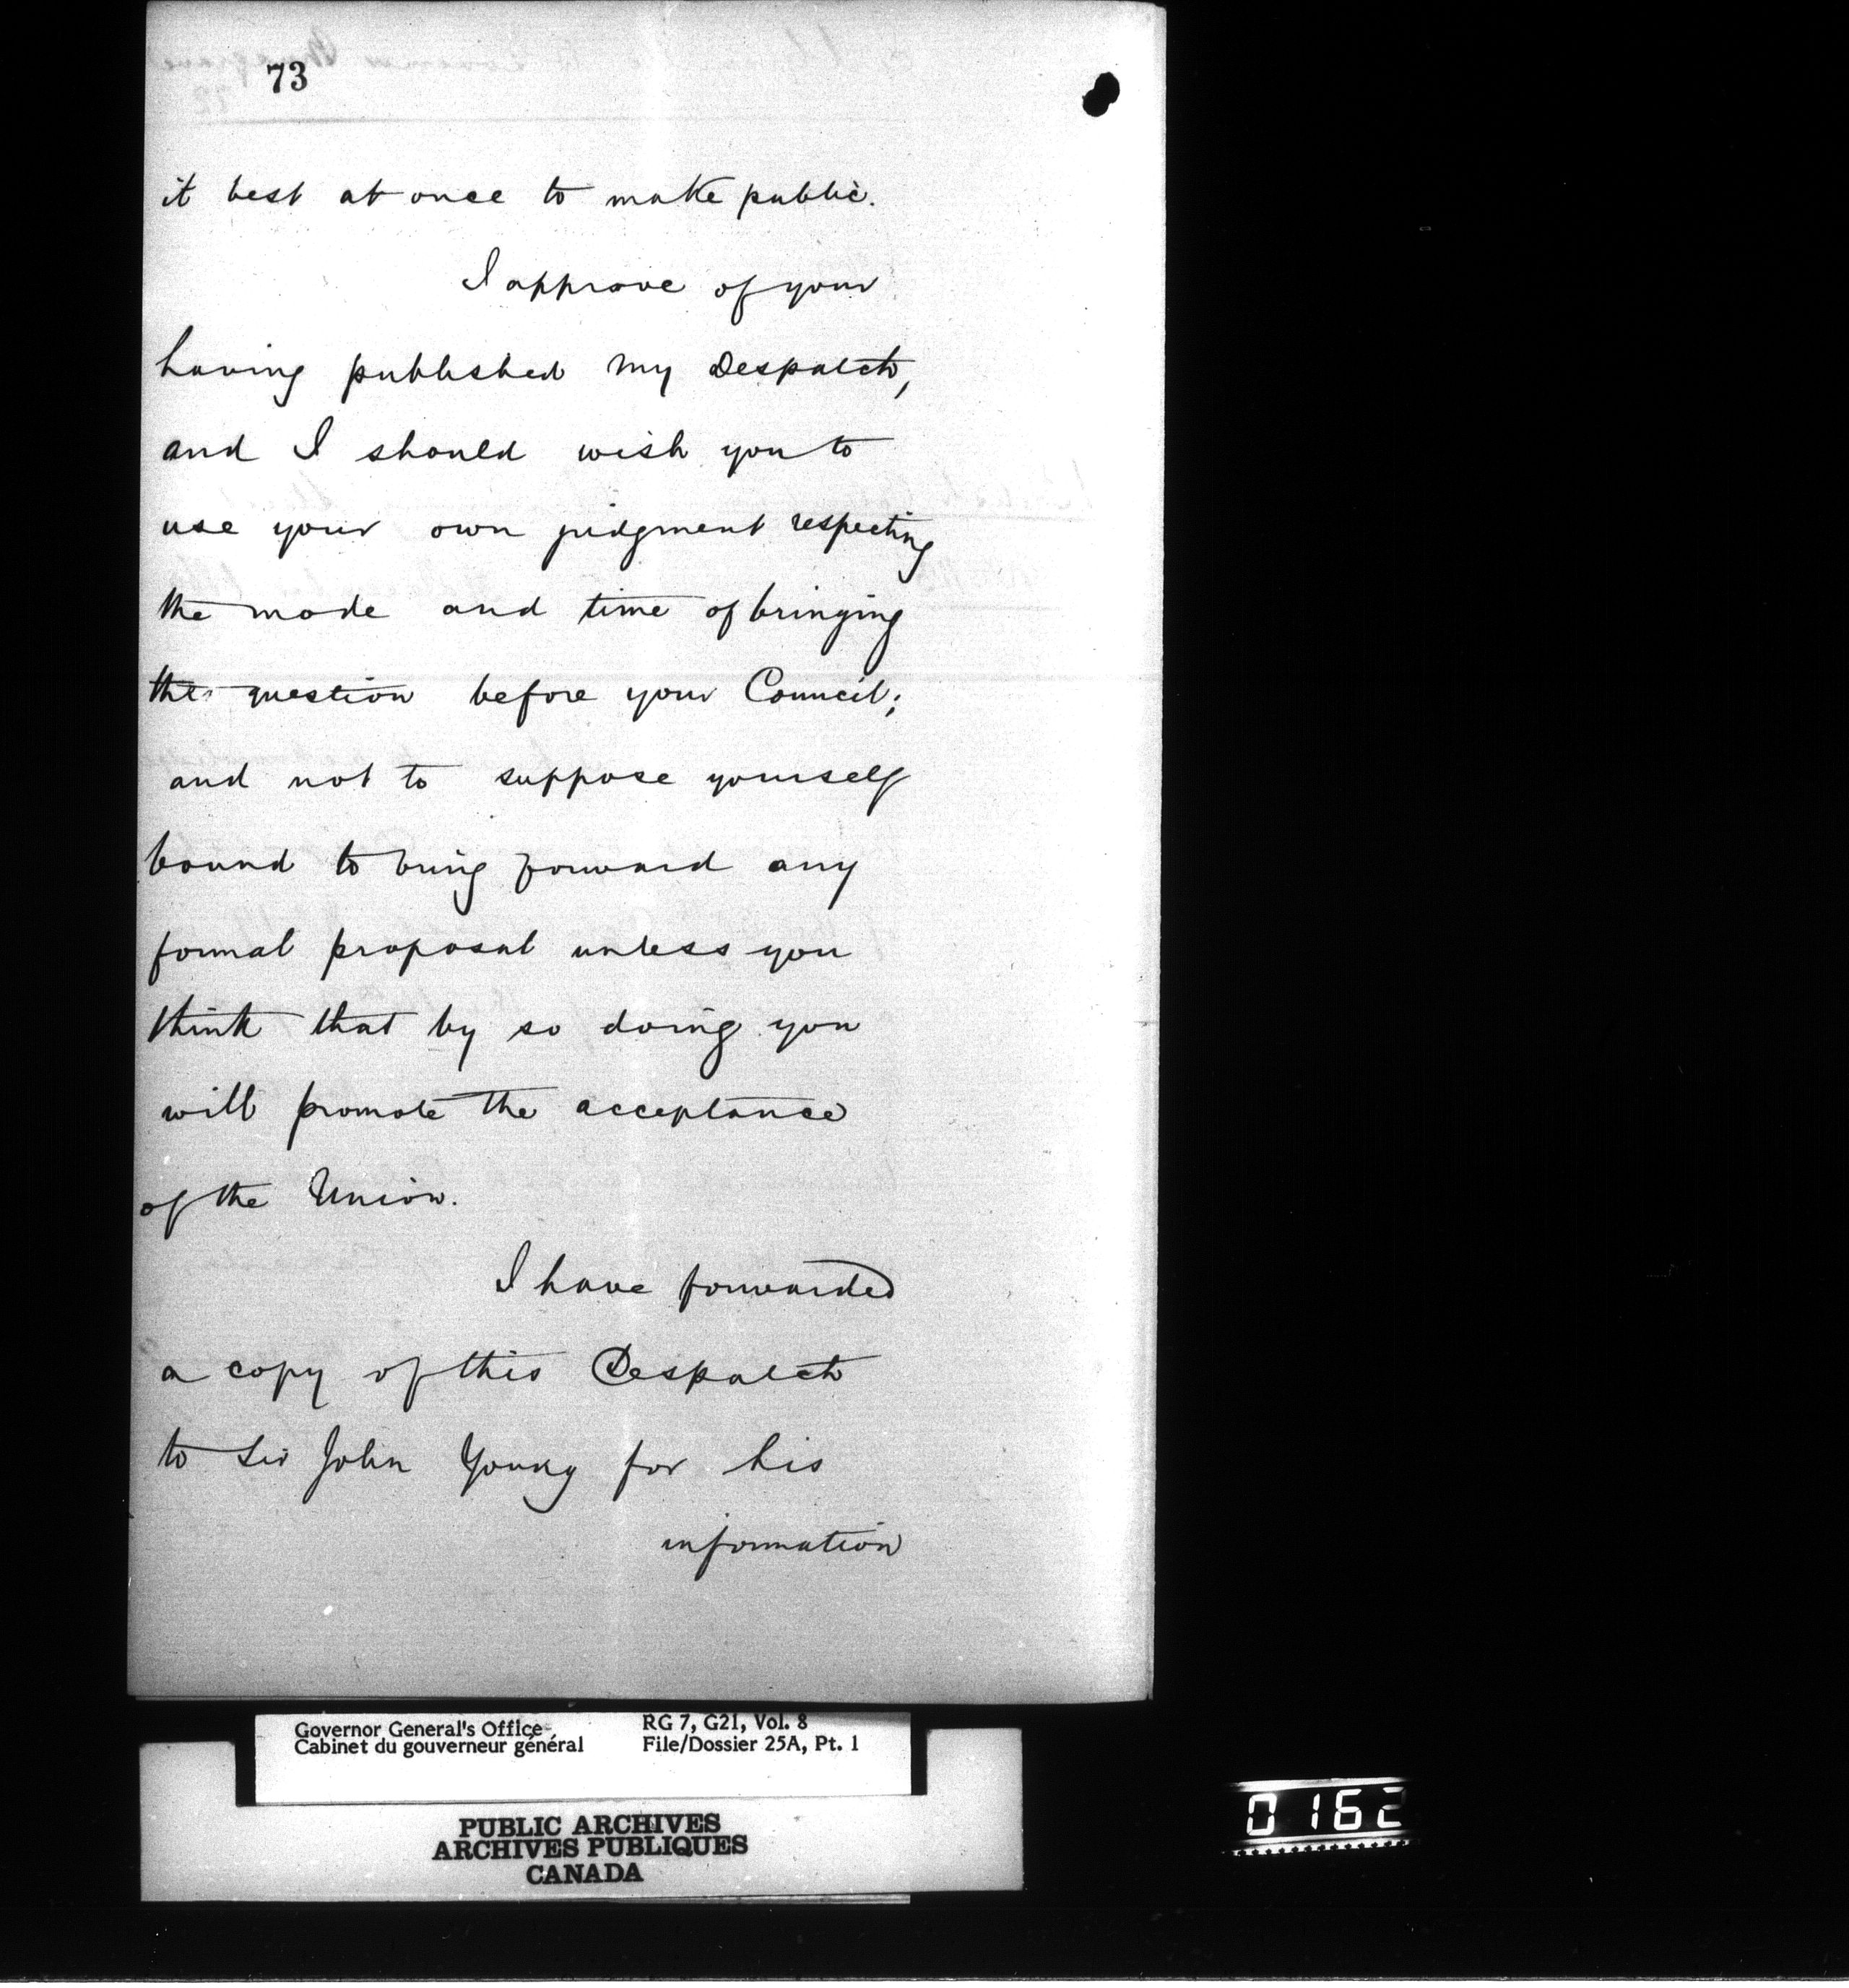 73
it best at once to make public.
I approve of your
having published my Despatch,
and I should wish you to
use your own judgment respecting
the mode and time of bringing
the question before your Council;
and not to suppose yourself
bound to bring forward any
formal proposal unless you
think that by so doing you
will promote the acceptance
of the Union.
I have forwarded
a copy of this Despatch
to Sir John Young for his
information
Governor General's Office
Cabinet du gouverneur général
RG 7, G21, Vol. 8
File/Dossier 25A, Pt. 1
PUBLIC ARCHIVES
ARCHIVES PUBLIQUES
CANADA
0162